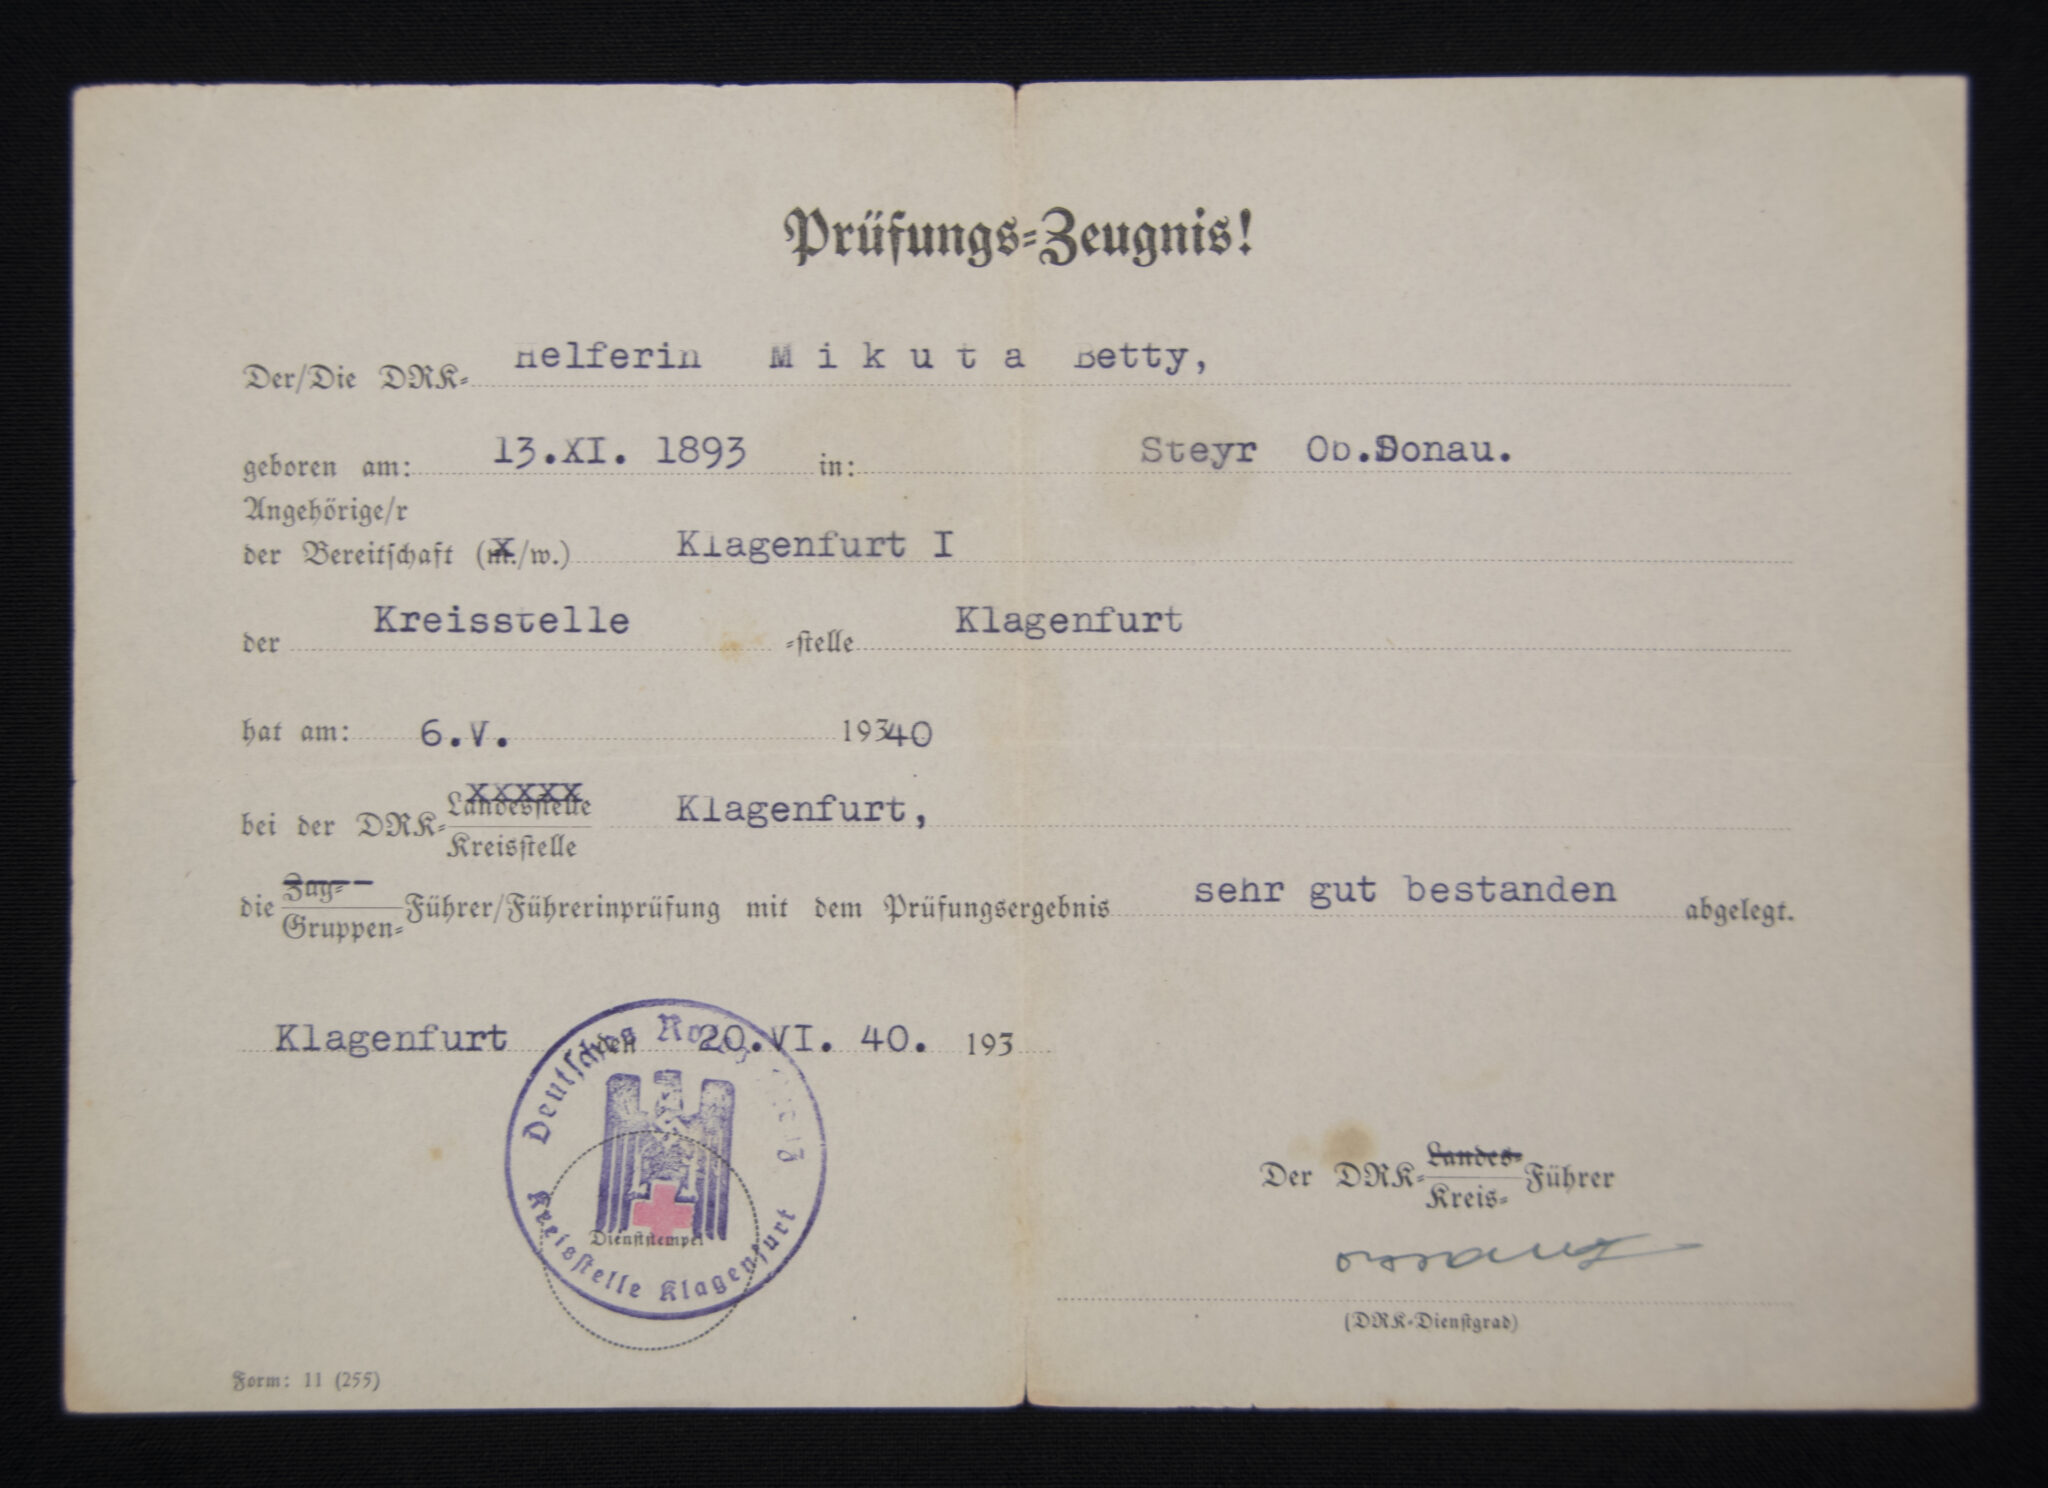 Prüfungs-Zeugnis!
Der/Die DRK- Helferin M i k u t a Betty,
geboren am: 13.XI. 1893 in: Steyr Ob.Donau.
Angehörige/r
der Bereitschaft (m./w.) Klagenfurt I
der Kreisstelle -stelle Klagenfurt
hat am: 6.V. 19340
bei der DRK- Landesstelle Klagenfurt,
Kreisstelle
die Zug- Führer/Führerinprüfung mit dem Prüfungsergebnis sehr gut bestanden abgelegt.
Gruppen-
Klagenfurt den 20.VI. 40. 193
Deutsches Rotes Kreuz
Kreisstelle Klagenfurt
Dienststempel
Der DRK- Landes- Führer
Kreis-
(DRK-Dienstgrad)
Form: 11 (255)